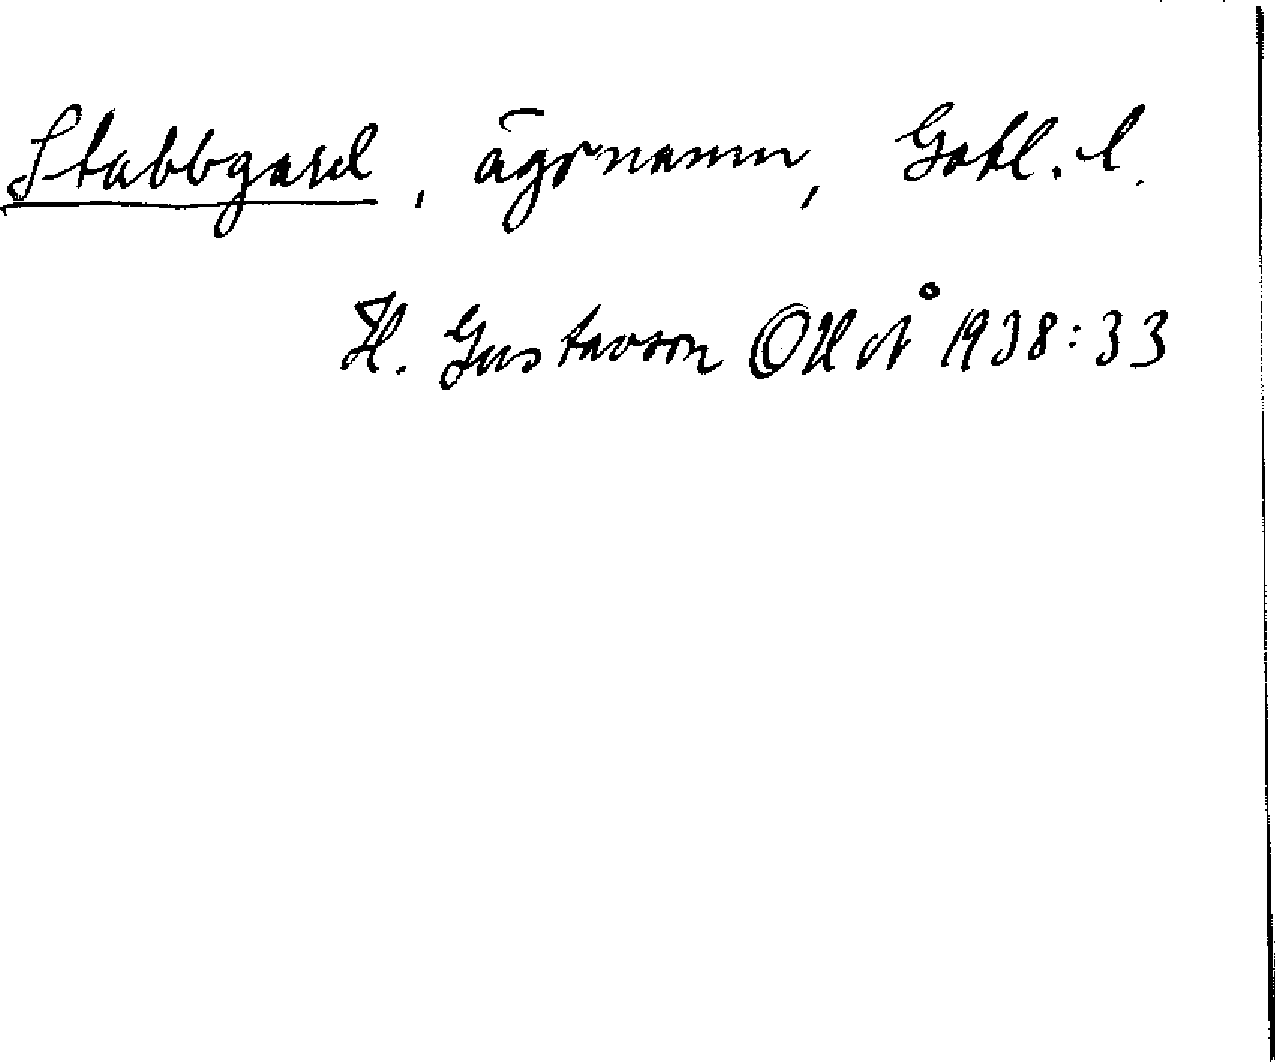 Stabbgard, ägonamn, Gotl. l.
H. Gustavson OUÅ 1938:33